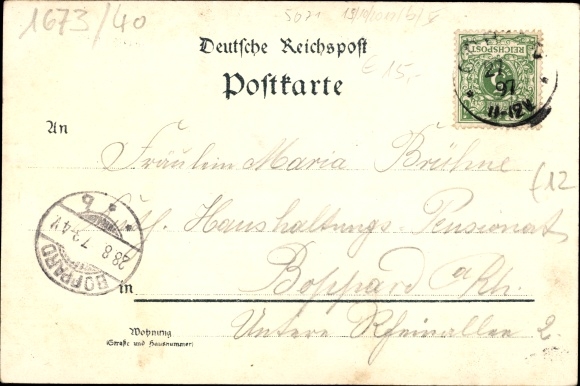 1673/40
Deutsche Reichspost
Postkarte
€ 15,-
REICHSPOST
27
97
11-12V
An
Fräulein Maria Brühne
Haushaltungs-Pensionat
Boppard a/Rh.
in
Untere Rheinallee 2.
Wohnung
(Straße und Hausnummer)
BOPPARD
28.8.97.3-4V.
* b *
(12